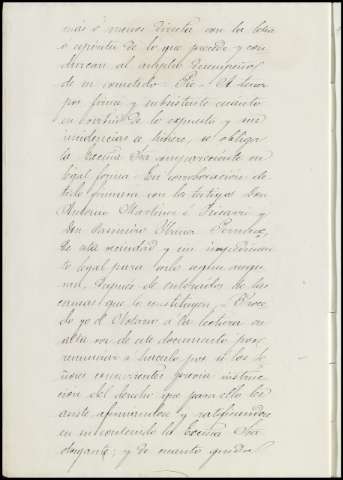 más ó menos directa con la letra
ó espíritu de lo que precede y con
duzcan al amplio desempeño
de su cometido. A tener
por firme y subsistente cuanto
en virtud de lo expuesto y sus
incidencias se hiciere, se obliga
la Excma Sra compareciente en
legal forma. En corroboración de
todo firman con los testigos Don
Antonio Martinez é y
Don
de esta vecindad y sin impedimen
to legal para serlo según asegu
ran, después de enterados de las
causas que lo constituyen. Proce
do yo el Notario á la lectura en
alta voz de este documento por
renunciar á hacerlo por sí los Se
ñores concurrentes previa instruc
cion del derecho que para ello les
asiste, afirmandose y ratificandose
en su contenido la Excma Sra
otorgante; y de cuanto queda